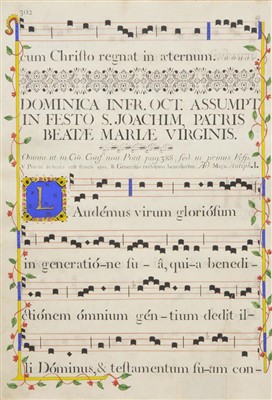 cum Christo regnat in æternum.
DOMINICA INFR. OCT. ASSUMPT
IN FESTO S. JOACHIM, PATRIS
BEATÆ MARIÆ VIRGINIS.
Omnia ut in Cõ Conf non Pont pag. 388. sed in primis Vesp.
Ad Magn. Antiph. 1.
LAudémus virum gloriósum
in generatió-ne su-â, qui-a benedi-
ctiónem ómnium gén-tium dedit il-
li Dóminus, & testamentum su-am con-